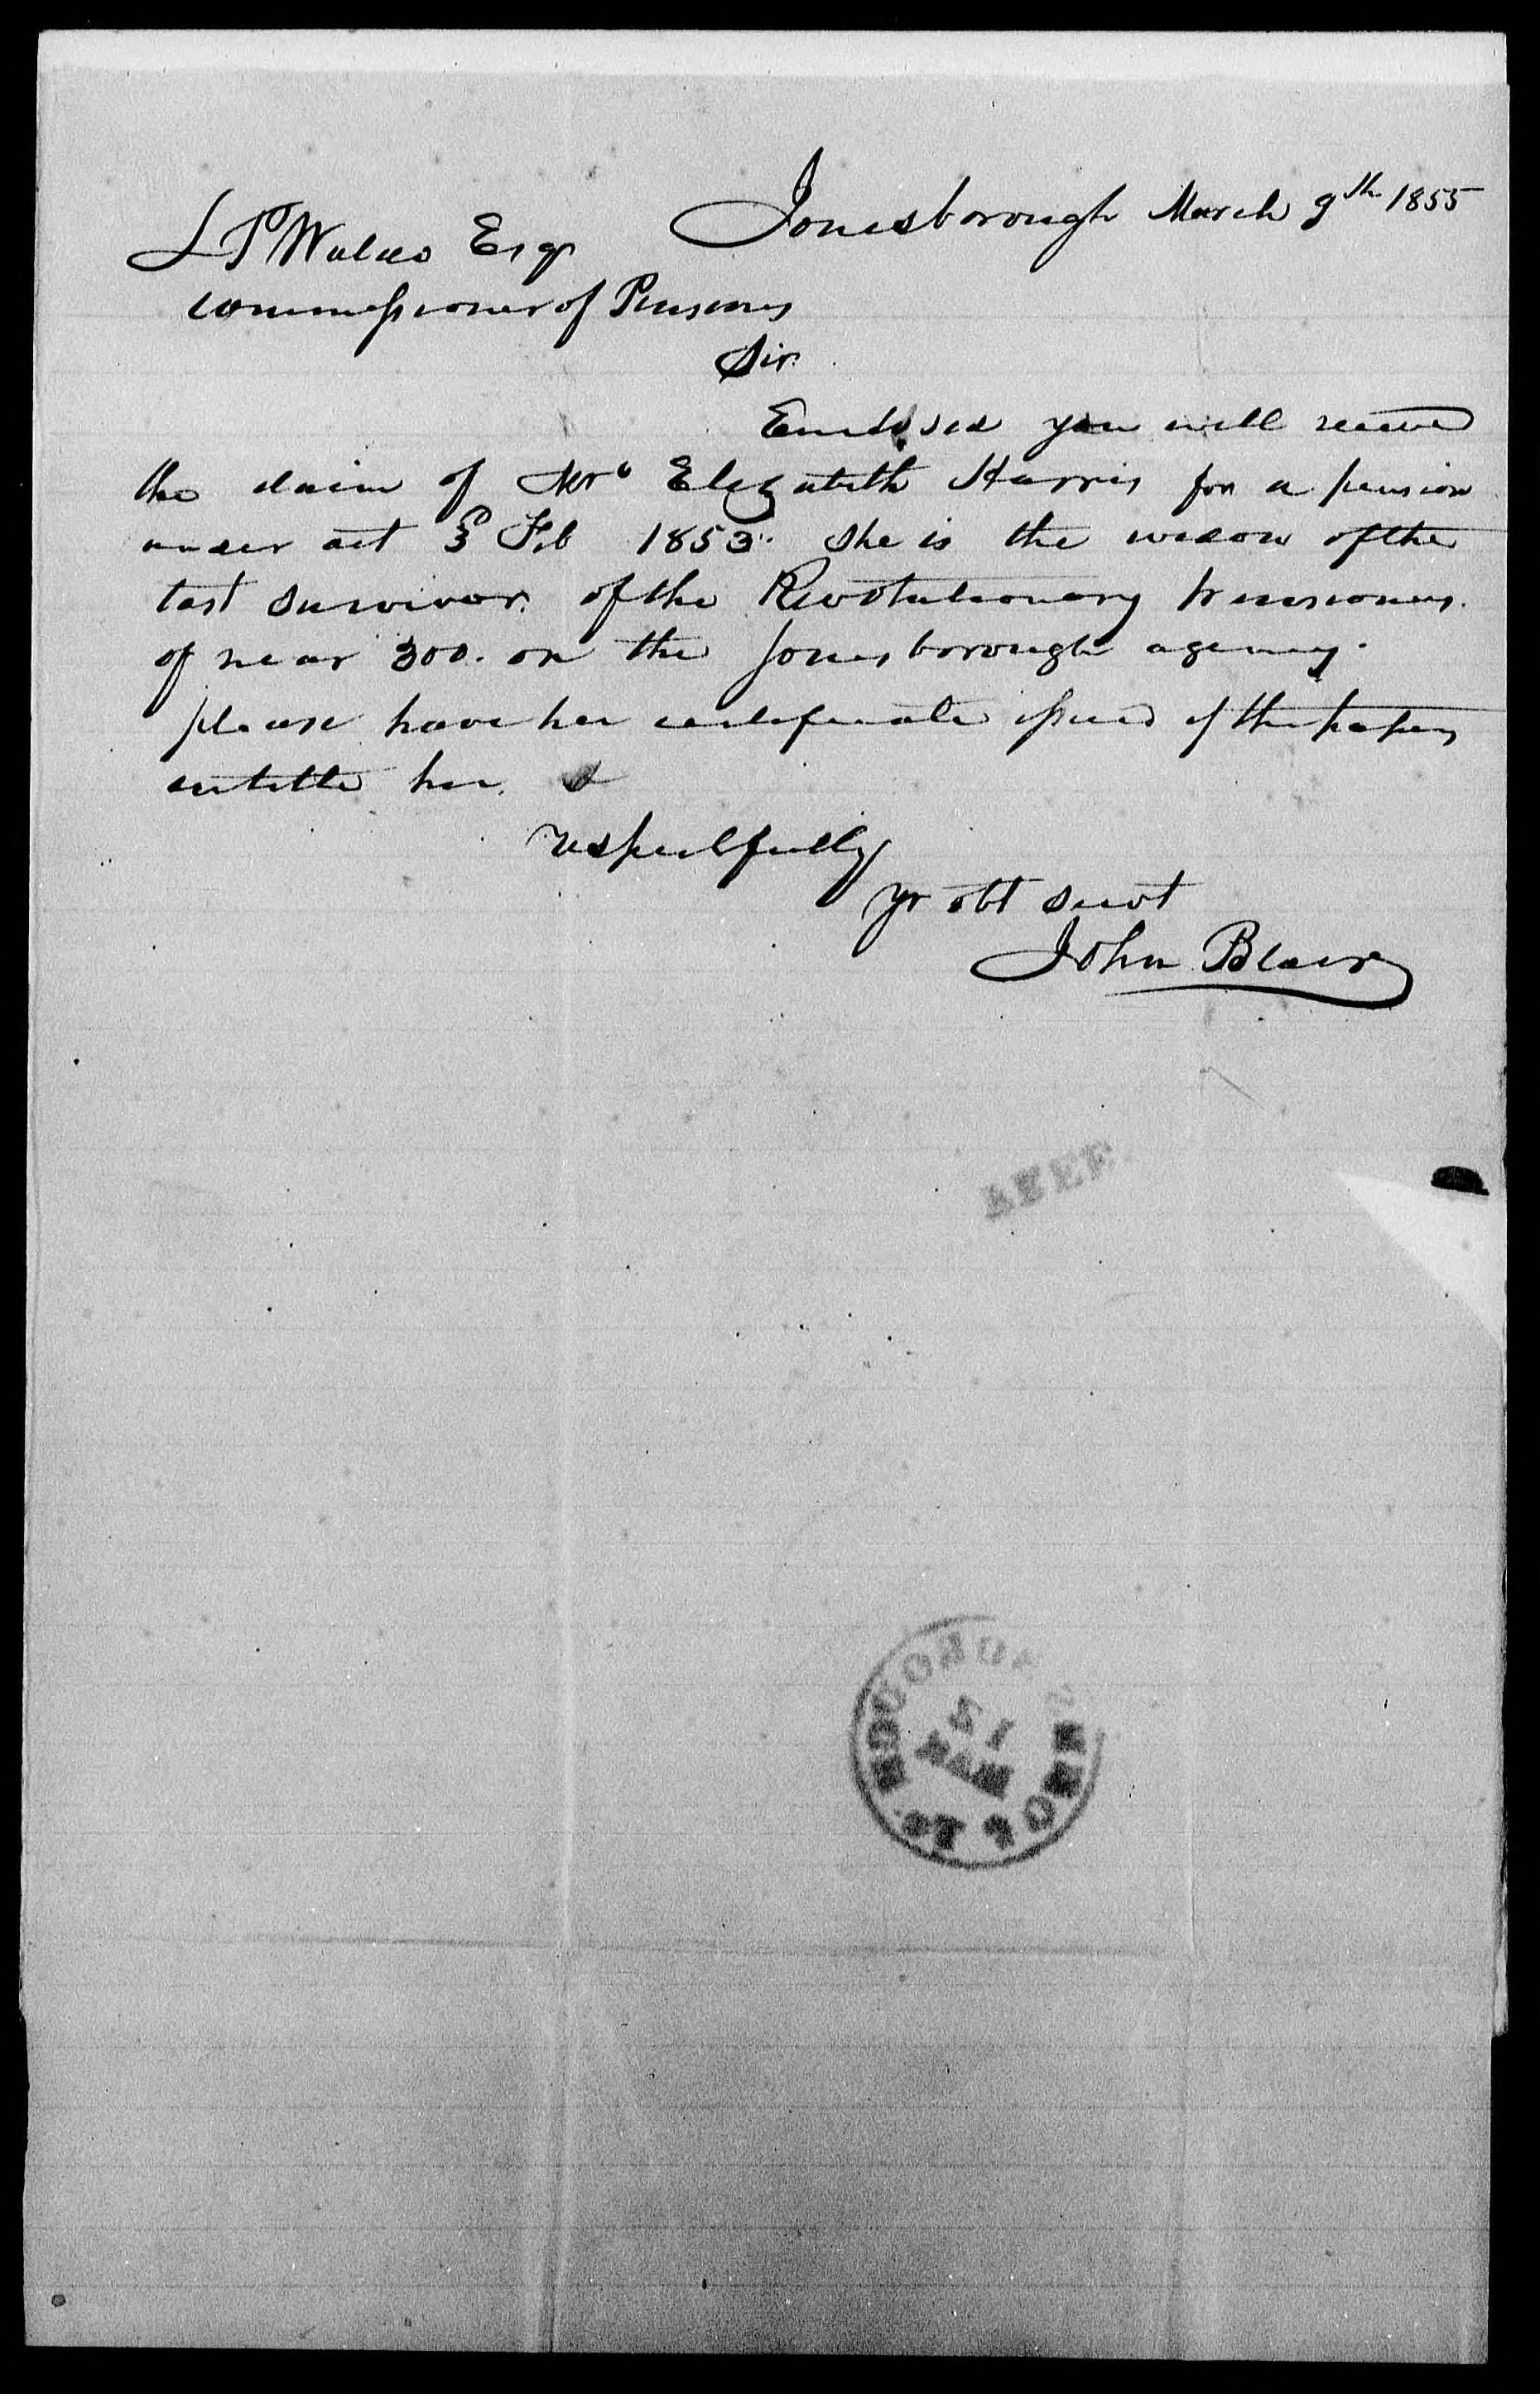 Jonesborough March 9th 1855
L P Waldo Esqr
Commissioner of Pensions
Sir
Enclosed you will receive
the claim of Mrs Elizabeth Harris for a pension
under act 3 Feb 1853. She is the widow of the
last survivor of the Revolutionary pensioners
of near 300. on the Jonesborough agency.
please have her certificate issued if the papers
entitle her. &
respectfully
yr obt servt
John Blair
FREE
JONESBOROUGH Te.
MAR
12